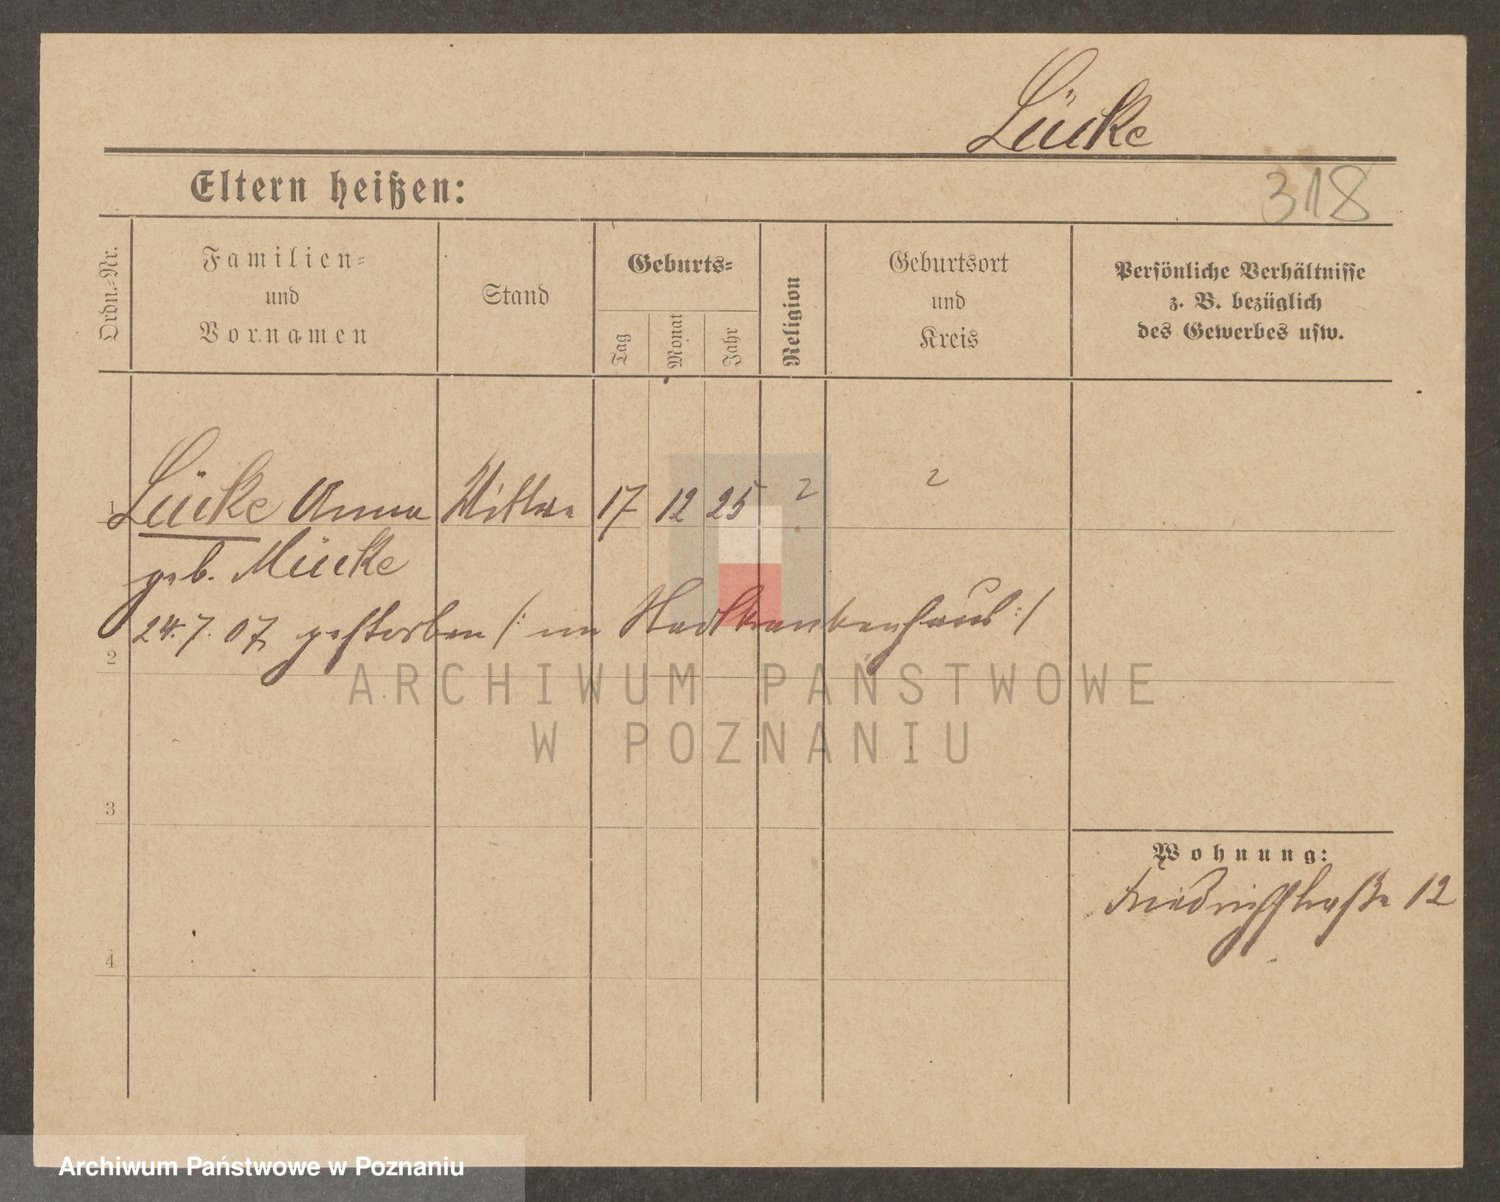 Lücke
Eltern heißen:
318
Ordn.-Nr.
Familien-
und
Vornamen
Stand
Geburts-
Tag
Monat
Jahr
Religion
Geburtsort
und
Kreis
Persönliche Verhältnisse
z. B. bezüglich
des Gewerbes usw.
1 Lücke Anna Witwe 17 12 25 ? ?
geb. Mücke
24.7.07 gestorben /: im Stadtkrankenhaus :/
2
ARCHIWUM PAŃSTWOWE
W POZNANIU
3
Wohnung:
Friedrichstraße 12
4
Archiwum Państwowe w Poznaniu